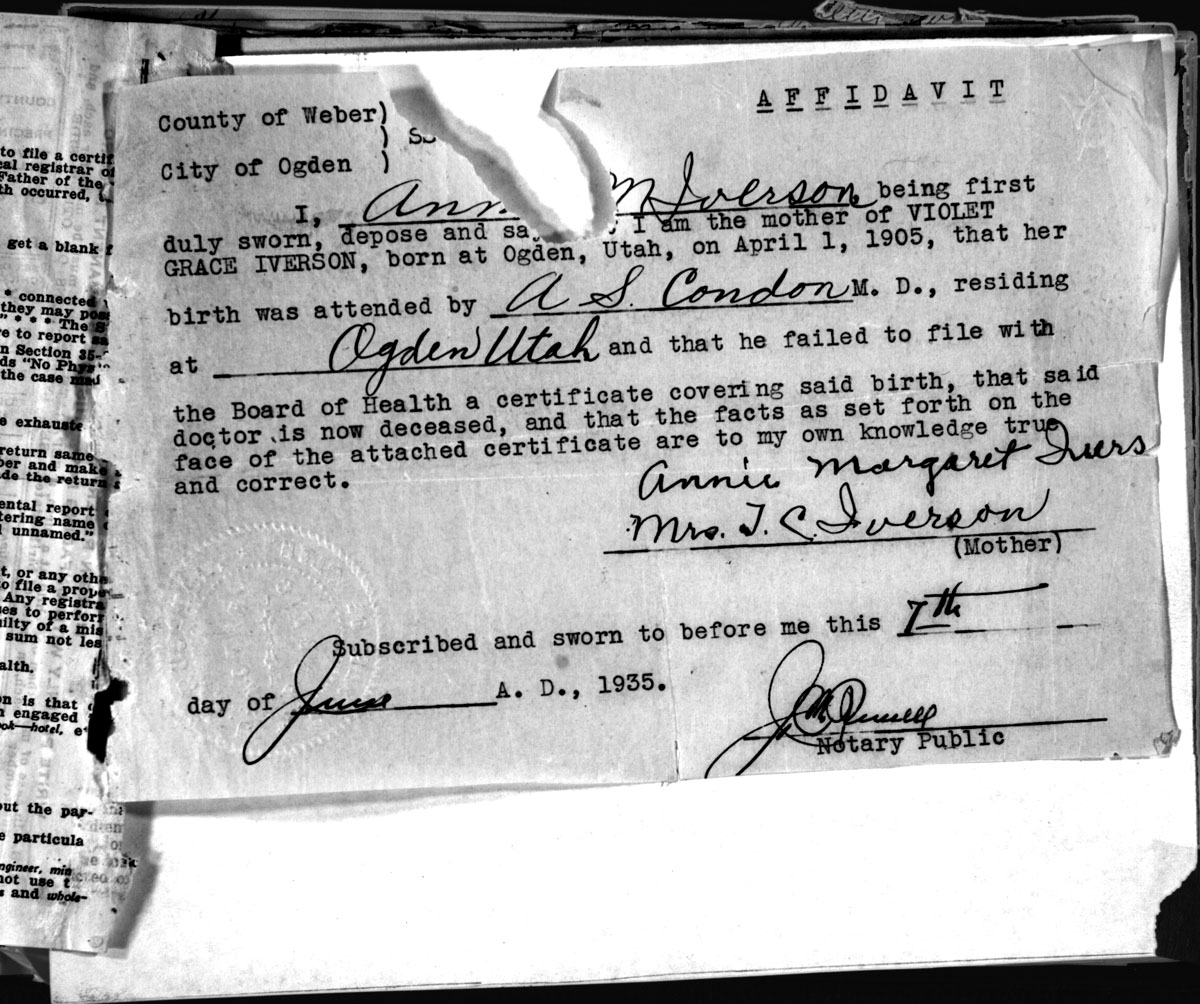 AFFIDAVIT
County of Weber)
) SS
City of Ogden )
I, Ann M Iverson being first
duly sworn, depose and sa I am the mother of VIOLET
GRACE IVERSON, born at Ogden, Utah, on April 1, 1905, that her
birth was attended by A S. Condon M. D., residing
at Ogden Utah and that he failed to file with
the Board of Health a certificate covering said birth, that said
doctor is now deceased, and that the facts as set forth on the
face of the attached certificate are to my own knowledge true
and correct.
Annie Margaret Ivers
Mrs. T. C. Iverson
(Mother)
Subscribed and sworn to before me this 7th
day of June A. D., 1935.
Notary Public
to file a certif
cal registrar of
Father of the
th occurred,
get a blank
* connected
they may pos
" * * * The S
re to report sa
n Section 35-
ds "No Phys
the case
e exhauste
return same
ber and make
de the return
ental report
tering name
unnamed."
t, or any othe
to file a prope
Any registra
es to perform
uilty of a mis
sum not les
alth.
on is that
n engaged
ook—hotel, e
out the par-
e particula
ngineer, min
not use t
s and whole-